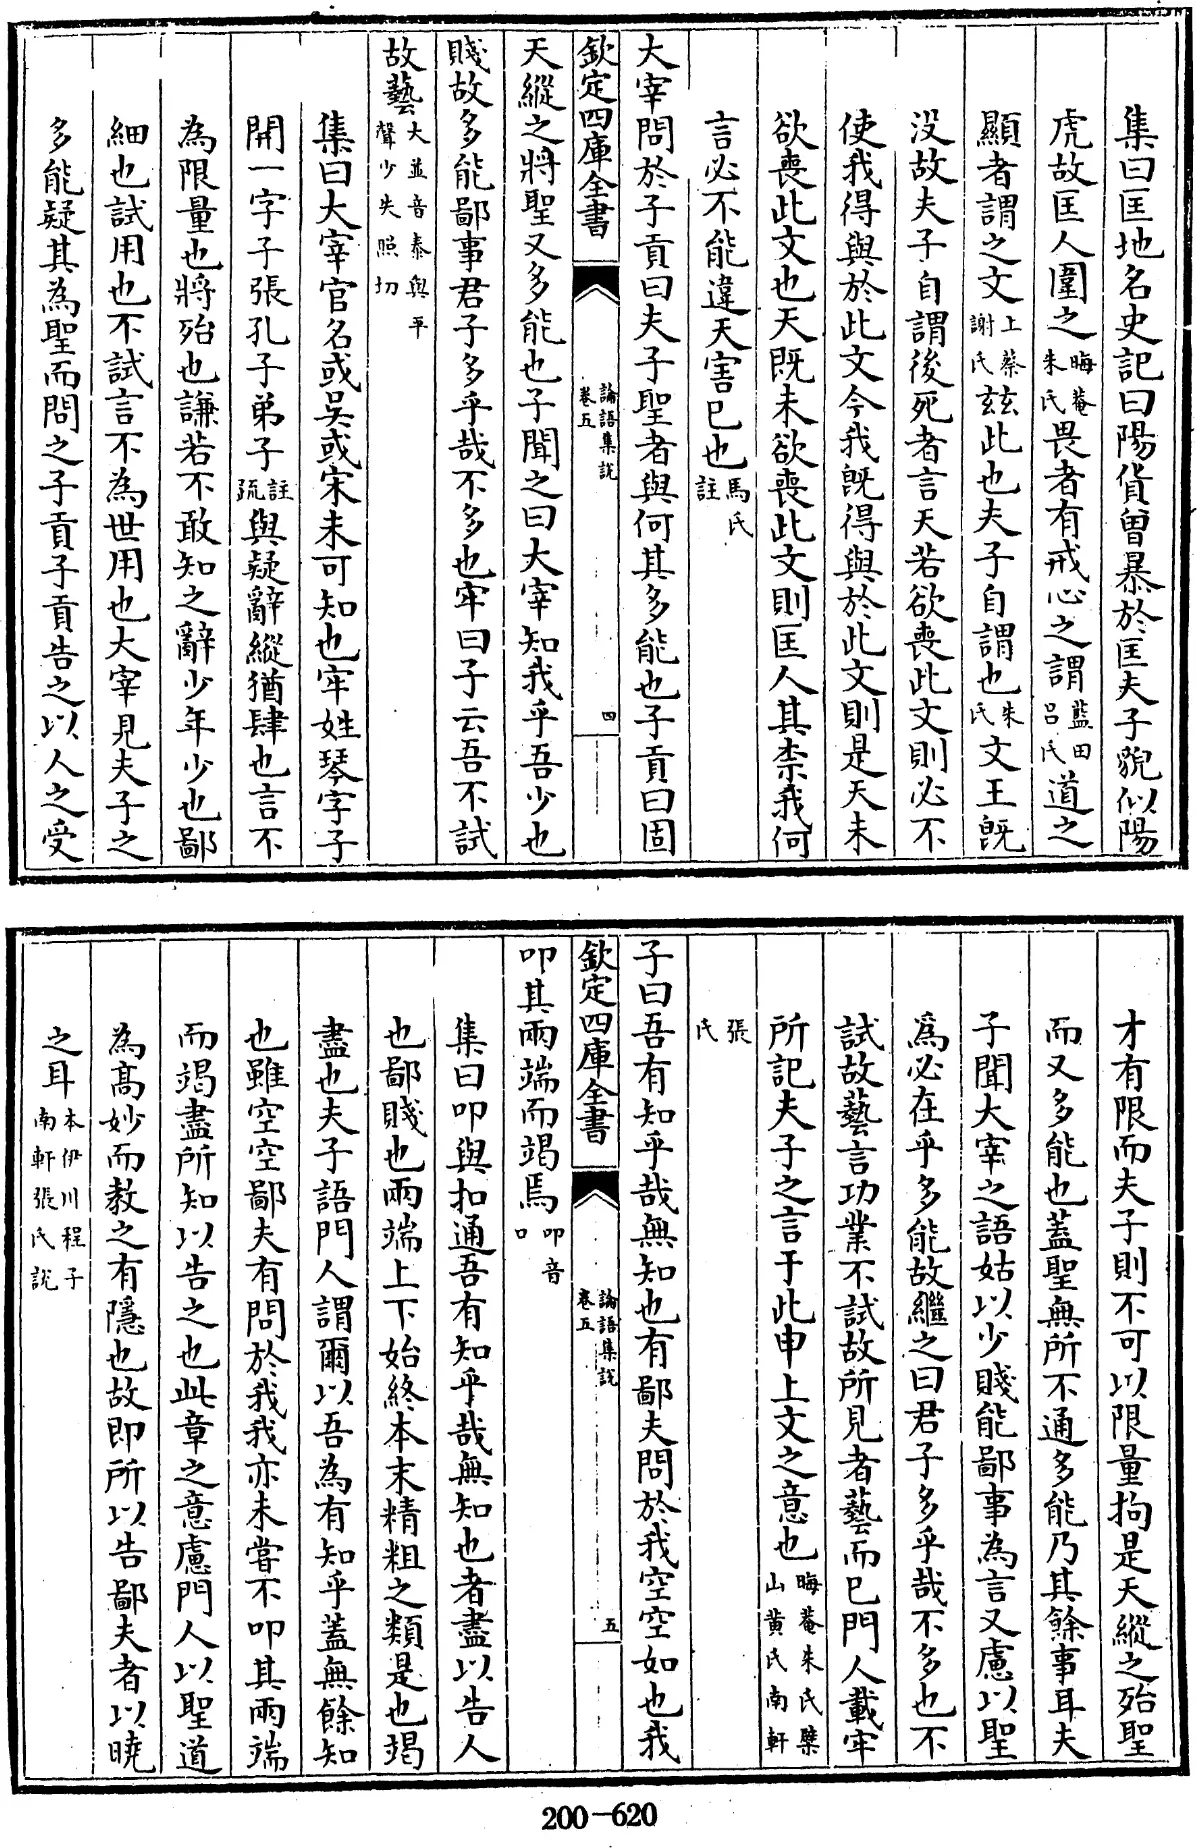 集曰匡地名史記曰陽貨曾暴於匡夫子貌似陽
虎故匡人圍之晦菴朱氏畏者有戒心之謂藍田呂氏道之
顯者謂之文上蔡謝氏玆此也夫子自謂也朱氏文王旣
没故夫子自謂後死者言天若欲喪此文則必不
使我得與於此文今我旣得與於此文則是天未
欲喪此文也天既未欲喪此文則匡人其柰我何
言必不能違天害已也馬氏註
大宰問於子貢曰夫子聖者與何其多能也子貢曰固
欽定四庫全書
論語集說
卷五
四
天縱之將聖又多能也子聞之曰大宰知我乎吾少也
賤故多能鄙事君子多乎哉不多也牢曰子云吾不試
故藝大並音泰與平聲少失照切
集曰大宰官名或吳或宋未可知也牢姓琴字子
開一字子張孔子弟子註疏與疑辭縱猶肆也言不
為限量也將殆也謙若不敢知之辭少年少也鄙
細也試用也不試言不為世用也大宰見夫子之
多能疑其為聖而問之子貢子貢告之以人之受
才有限而夫子則不可以限量拘是天縱之殆聖
而又多能也蓋聖無所不通多能乃其餘事耳夫
子聞大宰之語姑以少賤能鄙事為言又慮以聖
爲必在乎多能故繼之曰君子多乎哉不多也不
試故藝言功業不試故所見者藝而已門人載牢
所記夫子之言于此申上文之意也晦菴朱氏檗山黃氏南軒
張氏
子曰吾有知乎哉無知也有鄙夫問於我空空如也我
欽定四庫全書
論語集說
卷五
五
叩其兩端而竭焉叩音口
集曰叩與扣通吾有知乎哉無知也者盡以告人
也鄙賤也兩端上下始終本末精粗之類是也竭
盡也夫子語門人謂爾以吾為有知乎蓋無餘知
也雖空空鄙夫有問於我我亦未嘗不叩其兩端
而竭盡所知以告之也此章之意慮門人以聖道
為髙妙而教之有隱也故即所以告鄙夫者以曉
之耳本伊川程子南軒張氏說
200-620